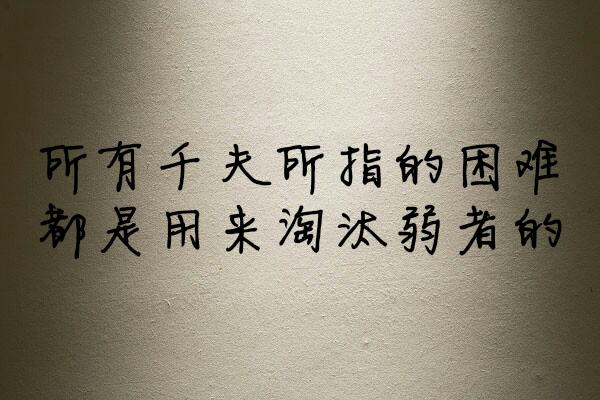 所有千夫所指的困难
都是用来淘汰弱者的